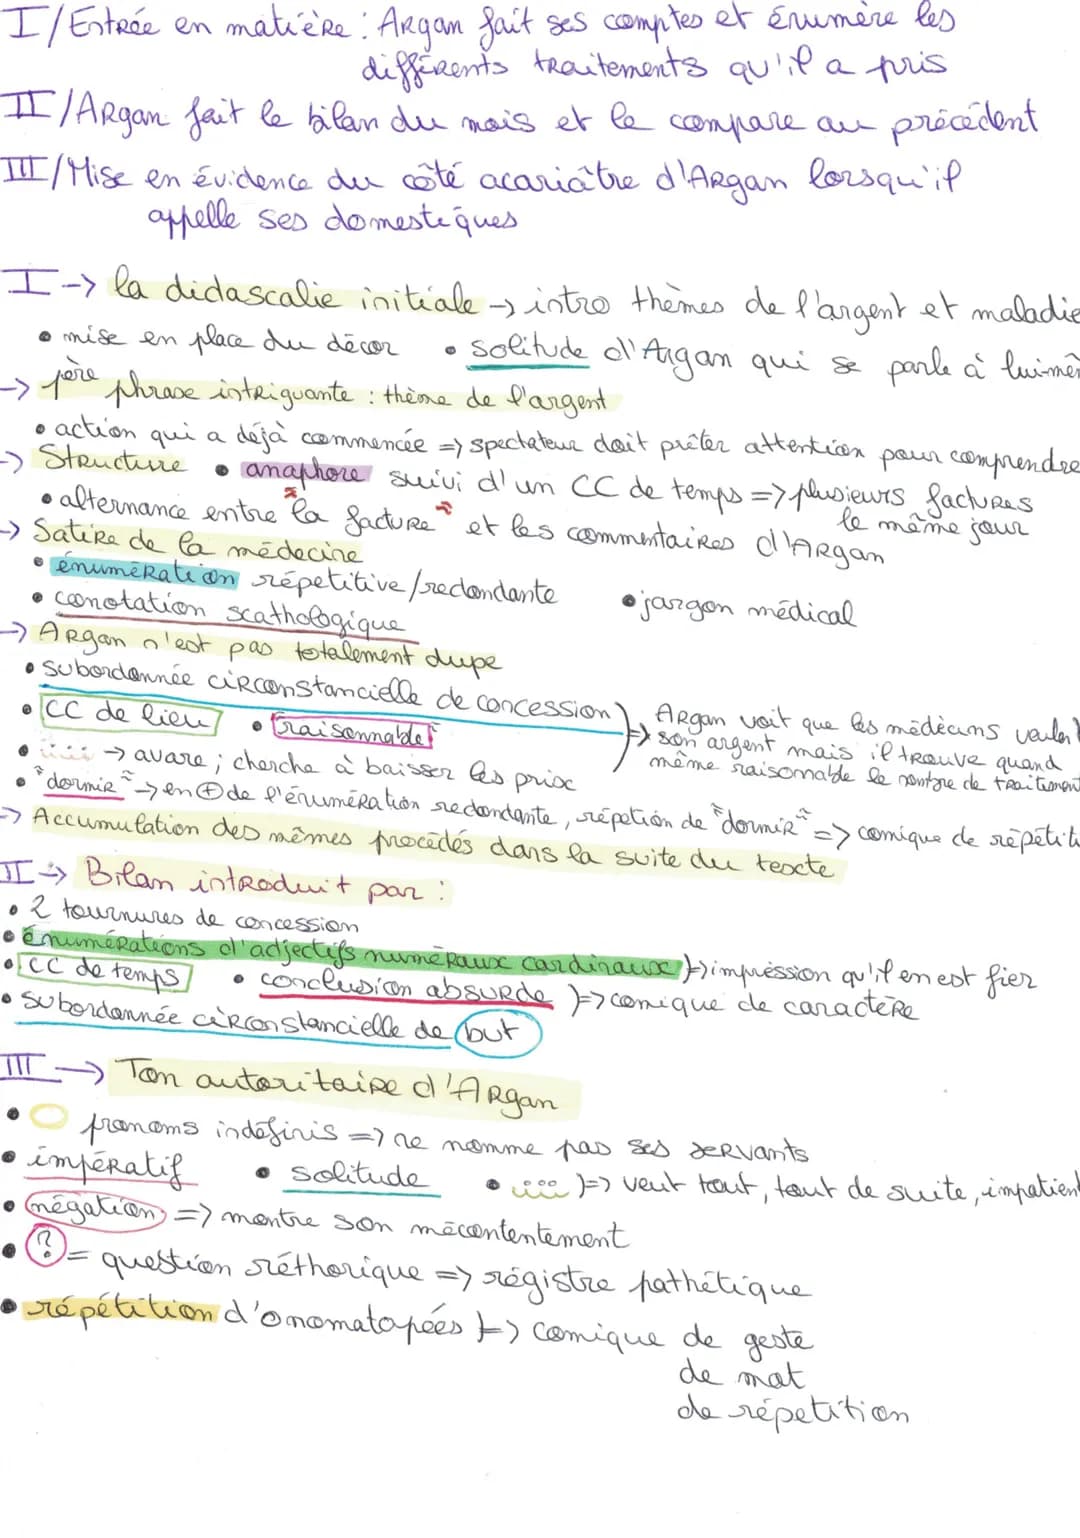 I/Entrée en matière : Argan fait ses comptes et énumère les
différents traitements qu'il a pris
II/Argan fait le bilan du mois et le compare au précédent
III/Mise en évidence du côté acariâtre d'Argan lorsqu'il
appelle ses domestiques
I -> la didascalie initiale -> intro thèmes de l'argent et maladie
• mise en place du décor • solitude d'Argan qui se parle à lui-mêm
-> 1ère phrase intriguante : thème de l'argent
• action qui a déjà commencée => spectateur doit prêter attention pour comprendre
-> Structure • anaphore suivi d'un CC de temps => plusieurs factures
le même jour
• alternance entre "la facture" et les commentaires d'Argan
-> Satire de la médecine
• énumération répetitive/redondante • jargon médical
• conotation scathologique
-> Argan n'est pas totalement dupe
• subordonnée circonstancielle de concession
• CC de lieu • "raisonnable"
=> Argan voit que les médecins veulent
son argent mais il trouve quand
même raisonnable le nombre de traitement
• ¡¡¡¡ -> avare ; cherche à baisser les prix
• "dormir" -> en + de l'énumération redondante, répetion de "dormir" => comique de répétiti
-> Accumulation des mêmes procédés dans la suite du texte
II -> Bilan introduit par :
• 2 tournures de concession
• énumérations d'adjectifs numéraux cardinaux }=> impression qu'il en est fier
• CC de temps • conclusion absurde }=> comique de caractère
• subordonnée circonstancielle de but
III -> Ton autoritaire d'Argan
• pronoms indéfinis => ne nomme pas ses servants
• impératif • solitude • ¡¡¡ }=> veut tout, tout de suite, impatient
• négation => montre son mécontentement
• ? = question réthorique => régistre pathétique
• répétition d'onomatopées }=> comique de geste
de mot
de répetition